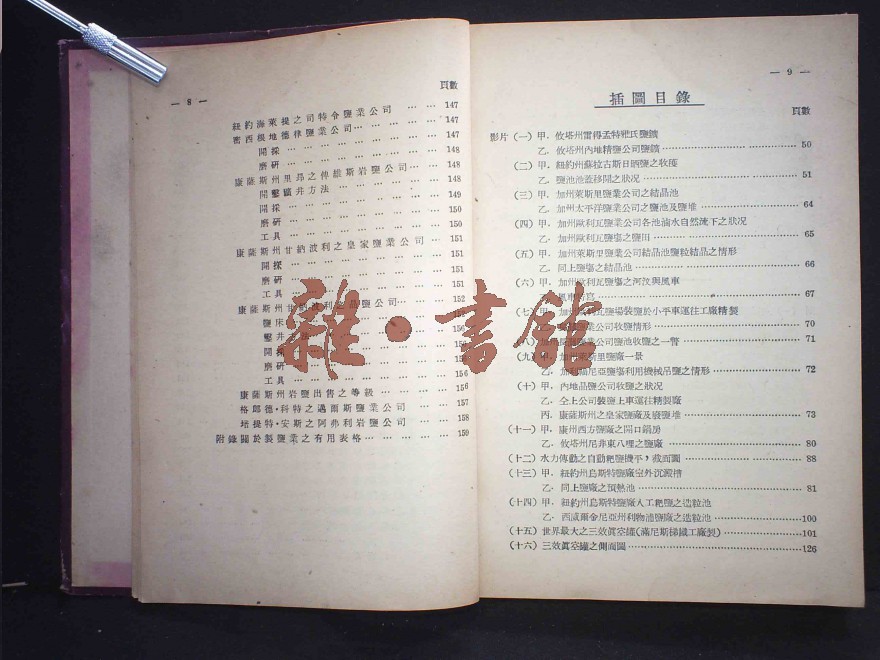 — 8 —
頁數
紐約海萊提之司特令鹽業公司 … … 147
密西根地德律鹽業公司 … … 147
開採 … … 147
磨研 … … 148
康薩斯州里昂之傳維斯岩鹽公司 … … 148
開鑿鹽井方法 … … 148
開採 … … 149
磨研 … … 150
工具 … … 150
康薩斯州甘納波利之皇家鹽業公司 … 151
開採 … … 151
磨研 … … 151
工具 … … 151
康薩斯州甘納波利 品鹽公司 … … 152
鹽床
鑿井 法
開
磨研 … 156
工具 … … 156
康薩斯州岩鹽出售之等級 … … 156
格郎德·科特之邁爾斯鹽業公司 … … 157
培提特·安斯之阿弗利岩鹽公司 … … 158
附錄關於製鹽業之有用表格 … … 159
— 9 —
插圖目錄
頁數
影片(一)甲. 攸塔州雷得孟特雅氏鹽鑛
乙. 攸塔州內地精鹽公司鹽鑛 … 50
(二)甲. 紐約州蘇拉古斯日晒鹽之收穫
乙. 鹽池池蓋移開之狀况 … 51
(三)甲. 加州萊斯里鹽業公司之結晶池
乙. 加州太平洋鹽業公司之鹽池及鹽堆 … 64
(四)甲. 加州歐利瓦鹽業公司各池滷水自然流下之狀况
乙. 加州歐利瓦鹽塲之鹽田 … 65
(五)甲. 加州萊斯里鹽業公司結晶池鹽粒結晶之情形
乙. 同上鹽塲之結晶池 … 66
(六)甲. 加州歐利瓦鹽塲之河汊與風車
風車 … 67
(七)甲. 加州 瓦鹽塲裝鹽於小平車運往工廠精製
鹽業公司收鹽情形 … 70
(八) 鹽業公司鹽池收鹽之一瞥 … 71
(九)甲. 加州萊斯里鹽廠一景
乙. 加 尼亞鹽塲利用機械吊鹽之情形 … 72
(十)甲. 內地晶鹽公司收鹽之狀况
乙. 仝上公司裝鹽上車運往精製廠
丙. 康薩斯州之皇家鹽廠及廢鹽堆 … 73
(十一)甲. 康州西方鹽廠之開口鍋房
乙. 攸塔州尼非東八哩之鹽廠 … 80
(十二)水力傳動之自動耙鹽機平,截面圖 … 88
(十三)甲. 紐約州烏斯特鹽廠室外沉澱槽
乙. 同上鹽廠之預熱池 … 81
(十四)甲. 紐約州烏斯特鹽廠人工耙鹽之造粒池
乙. 西威爾金尼亞州利物池鹽廠之造粒池 … 100
(十五)世界最大之三效眞空罐(滿尼斯梯鐵工廠製) … 101
(十六)三效眞空罐之側面圖 … 126
雜·書館